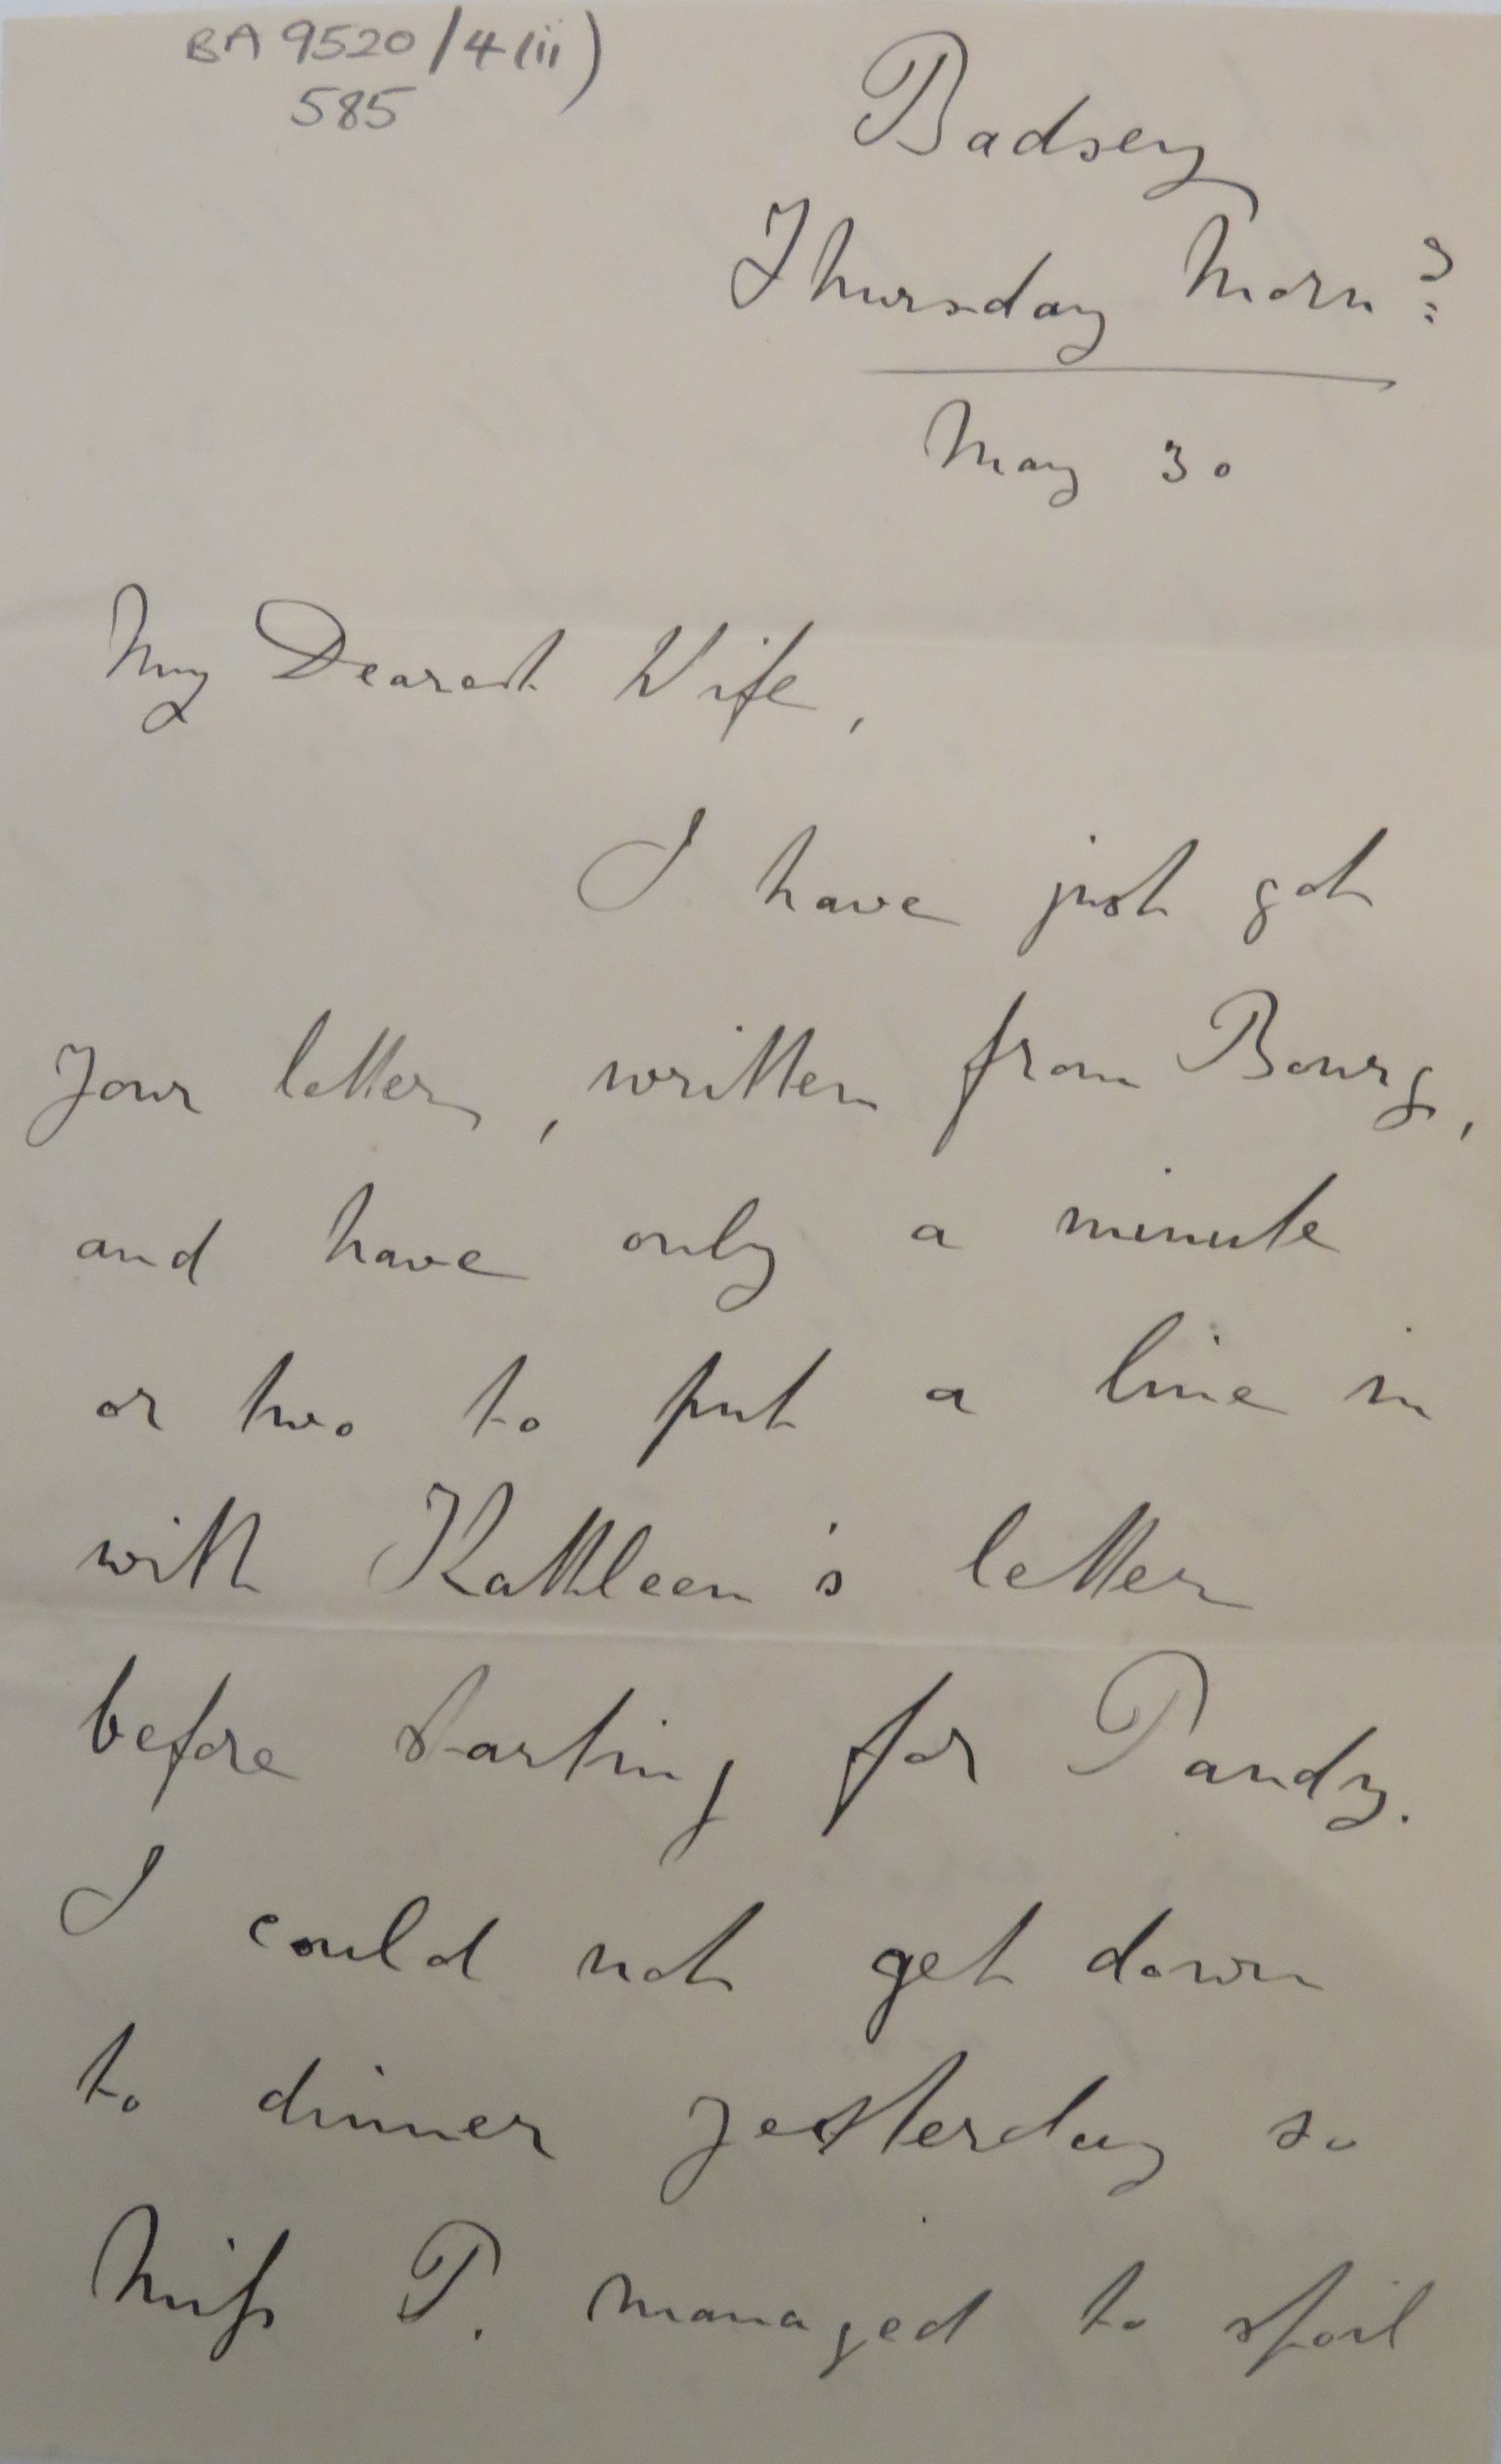 BA 9520/4(ii)
585
Badsey
Thursday Morn g:
May 30
My Dearest Wife,
I have just got
your letter, written from Bourg,
and have only a minute
or two to put a line in
with Kathleen's letter
before starting for Pandy.
I could not get down
to dinner yesterday so
Miss P. managed to spoil